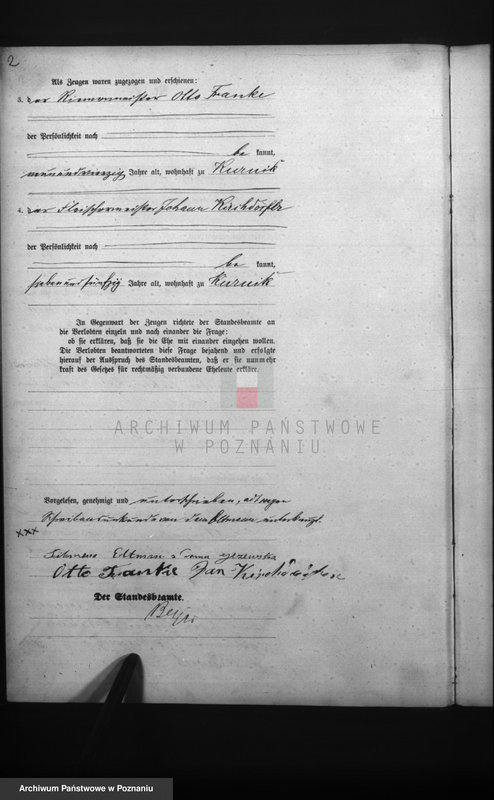 2
Als Zeugen waren zugezogen und erschienen:
3. der Riemermeister Otto Franke
der Persönlichkeit nach
be kannt,
neunundvierzig Jahre alt, wohnhaft zu Kurnik
4. der Fleischermeister Johann Kirchdörfer
der Persönlichkeit nach
be kannt,
siebenundfünfzig Jahre alt, wohnhaft zu Kurnik
In Gegenwart der Zeugen richtete der Standesbeamte an
die Verlobten einzeln und nach einander die Frage:
ob sie erklären, daß sie die Ehe mit einander eingehen wollen.
Die Verlobten beantworteten diese Frage bejahend und erfolgte
hierauf der Ausspruch des Standesbeamten, daß er sie nunmehr
kraft des Gesetzes für rechtmäßig verbundene Eheleute erkläre.
ARCHIWUM PAŃSTWOWE
W POZNANIU
Vorgelesen, genehmigt und unterschrieben, und wegen
Schreibensunkunde von dem unterkreuzt.
xxx
Ettman
Otto Franke Jan
Der Standesbeamte.
Archiwum Państwowe w Poznaniu